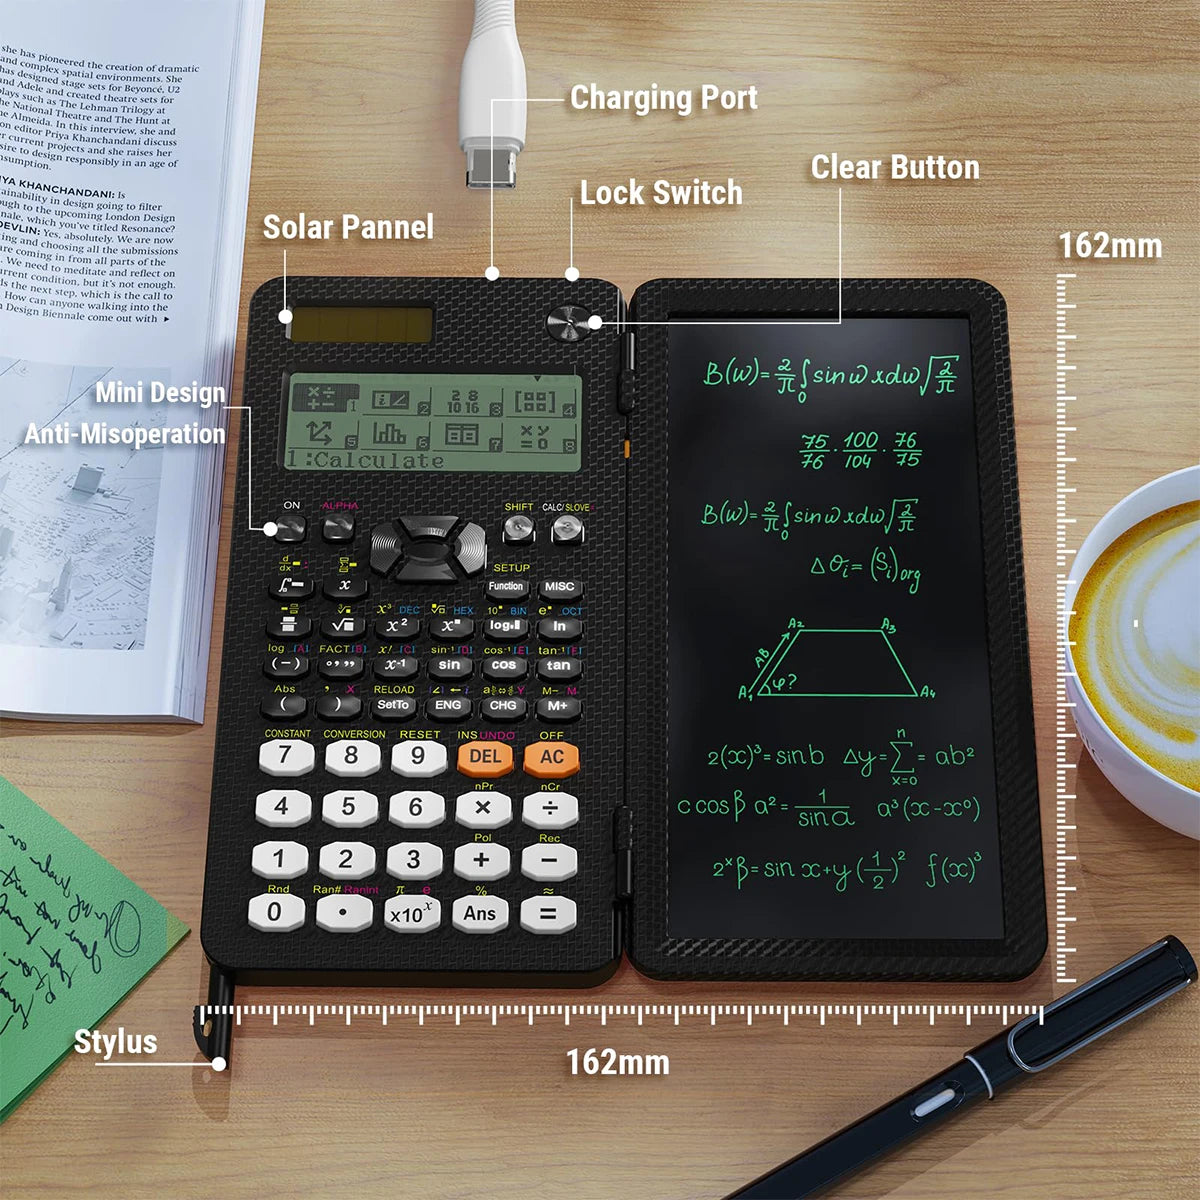 she has pioneered the creation of dramatic
and complex spatial environments. She
has designed stage sets for Beyoncé, U2
and Adele and created theatre sets for
plays such as The Lehman Trilogy at
the National Theatre and The Hunt at
Almeida. In this interview, she and
editor Priya Khanchandani discuss
current projects and she raises her
to design responsibly in an age of
KHANCHANDANI: Is
in design going to filter
to the upcoming London Design
which you've titled Resonance?
DEVLIN: Yes, absolutely. We are now
and choosing all the submissions
coming in from all parts of the
We need to meditate and reflect on
current condition, but it's not enough.
the next step, which is the call to
How can anyone walking into the
Design Biennale come out with ▸
Charging Port
Clear Button
Lock Switch
Solar Pannel
162mm
Mini Design
Anti-Misoperation
1 2 8 10 16 2 3 4
5 6 7 x y = 0 8
1:Calculate
ON ALPHA SHIFT CALC/ SLOVE =
SETUP
d/dx
∫ x Function MISC
x³ DEC HEX 10 BIN e OCT
√ x² x log ln
log [A] FACT [B] x! [C] sin⁻¹ [D] cos⁻¹ [E] tan⁻¹ [F]
(−) x⁻¹ sin cos tan
Abs , X RELOAD Y M− M
( ) SetTo ENG CHG M+
CONSTANT CONVERSION RESET INS UNDO OFF
7 8 9 DEL AC
nPr nCr
4 5 6 × ÷
Pol Rec
1 2 3 + −
Rnd Ran# RanInt π e % ≈
0 • x10ˣ Ans =
B(ω)= 2/π ∫₀ sin ω x dω √2/π
75/76 · 100/104 · 76/75
B(ω)= 2/π ∫₀ sin ω x dω √2/π
Δθᵢ= (Sᵢ)org
A₂ A₃
AB
A₁ φ? A₄
2(x)³= sin b Δy= n Σ x=0 = ab²
c cos β a²= 1/sin a a³(x-x⁰)
2ˣβ= sin x+y(1/2)² f(x)³
Stylus
162mm